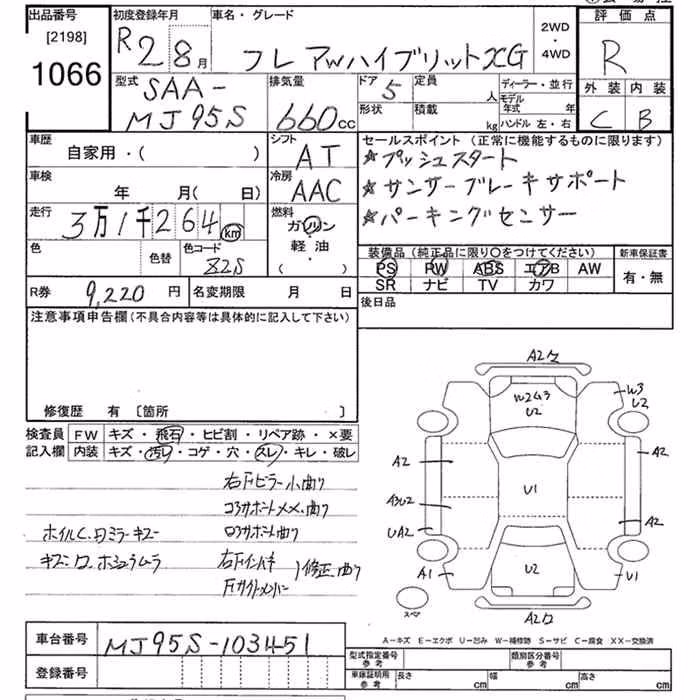 出品番号
[2198]
1066
初度登録年月
R2 8月
車名・グレード
フレアwハイブリットXG
2WD
・
4WD
評価点
R
外装 内装
C B
型式
SAA-
MJ95S
排気量
660cc
ドア
5
定員
人
形状
積載
kg
ディーラー・並行
モデル
年式 年
ハンドル 左・右
車歴
自家用・( )
シフト
AT
セールスポイント (正常に機能するものに限ります)
★プッシュスタート
★サンサーブレーキサポート
★パーキングセンサー
車検
年 月( 日)
冷房
AAC
走行
3万1千264km
燃料
ガソリン・
軽油・
( )
色
色替
色コード
Z2S
装備品 (純正品に限り○をつけてください)
新車保証書
PS PW ABS エアB AW
SR ナビ TV カワ
有・無
R券 9,220円
名変期限 月 日
後日品
注意事項申告欄(不具合内容等は具体的に記入して下さい)
修復歴 有 〔箇所 〕
検査員
記入欄
FW キズ・飛石・ヒビ割・リペア跡・×要
内装 キズ・汚レ・コゲ・穴・スレ・キレ・破レ
右下ピラー小曲り
コアサポートメメ、曲り
ホイルC.日ミラーキズー
ロアサポート曲り
右下インパネ
修正、曲り
A2
W2
U2
W3
U2
A2
A2
A3U2
U1
UA2
A2
A1
U2
U1
スペア
A2
A-キズ E-エクボ U-凹み W-補修跡 S-サビ C-腐食 XX-交換済
車台番号
MJ95S-103451
登録番号
型式指定番号
参考
類別区分番号
参考
車庫証明用
参考
長さ cm
幅 cm
高さ cm